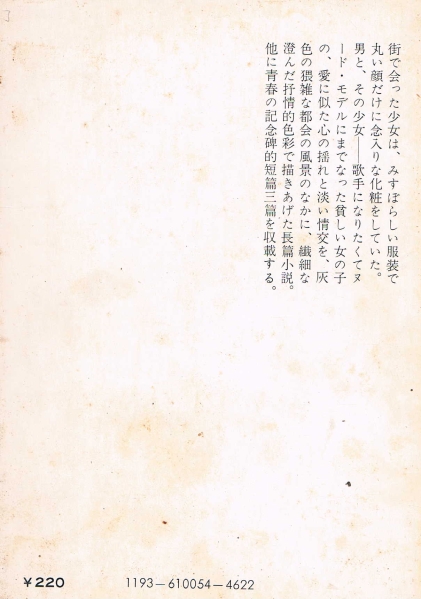 街で会った少女は、みすぼらしい服装で
丸い顔だけに念入りな化粧をしていた。
男と、その少女——歌手になりたくてヌ
ード・モデルにまでなった貧しい女の子
の、愛に似た心の揺れと淡い情交を、灰
色の猥雑な都会の風景のなかに、繊細な
澄んだ抒情的色彩で描きあげた長篇小説。
他に青春の記念碑的短篇三篇を収載する。
¥220
1193—610054—4622